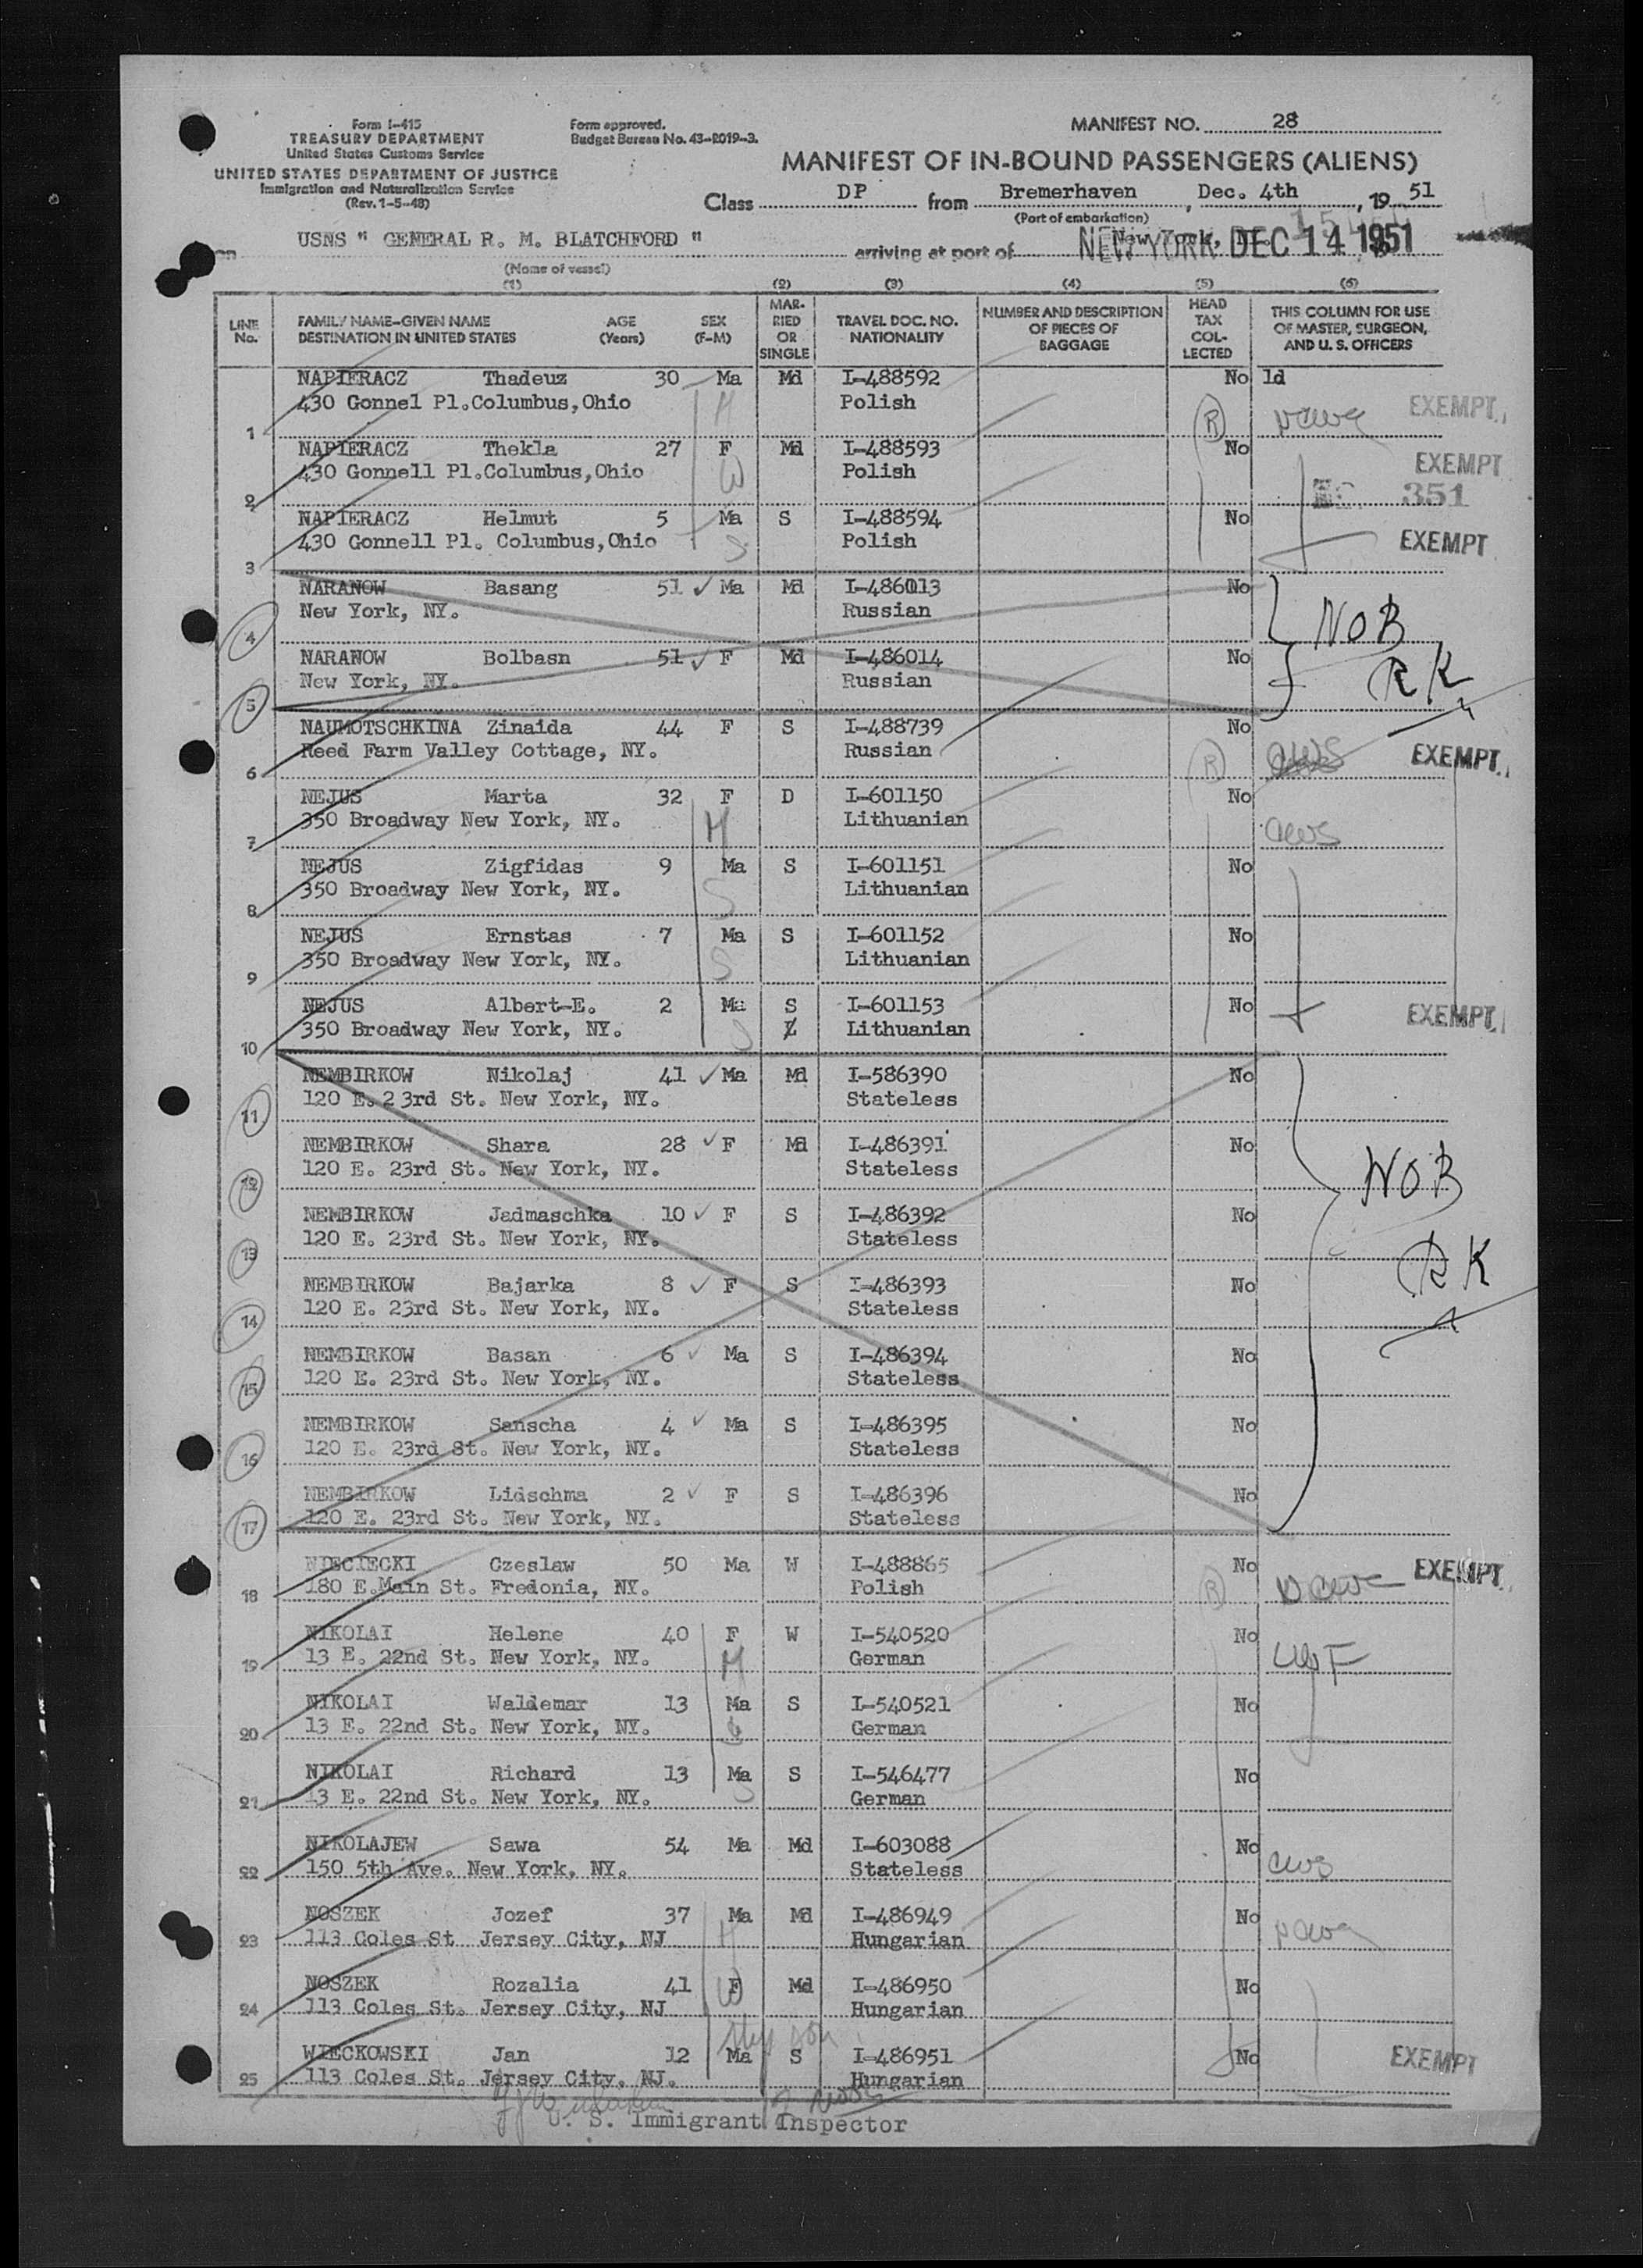 Form I-415
TREASURY DEPARTMENT
United States Customs Service
UNITED STATES DEPARTMENT OF JUSTICE
Immigration and Naturalization Service
(Rev. 1-5-48)
Form approved.
Budget Bureau No. 43-R019-3.
MANIFEST NO. 28
MANIFEST OF IN-BOUND PASSENGERS (ALIENS)
Class DP from Bremerhaven, Dec. 4th, 19 51
(Port of embarkation)
on USNS " GENERAL R. M. BLATCHFORD " arriving at port of NEW YORK DEC 14 1951
(Name of vessel)
(1) (2) (3) (4) (5) (6)
LINE No. FAMILY NAME-GIVEN NAME DESTINATION IN UNITED STATES AGE (Years) SEX (F-M) MARRIED OR SINGLE TRAVEL DOC. NO. NATIONALITY NUMBER AND DESCRIPTION OF PIECES OF BAGGAGE HEAD TAX COLLECTED THIS COLUMN FOR USE OF MASTER, SURGEON, AND U. S. OFFICERS
NAPIERACZ Thadeuz 30 Ma Md I-488592 No ld
1 430 Gonnel Pl.Columbus,Ohio H Polish R EXEMPT
NAPIERACZ Thekla 27 F Md I-488593 No
2 430 Gonnell Pl.Columbus,Ohio W Polish EXEMPT
351
NAPIERACZ Helmut 5 Ma S I-488594 No
3 430 Gonnell Pl. Columbus,Ohio S Polish EXEMPT
NARANOW Basang 51 ✓ Ma Md I-486013 No
4 New York, NY. Russian NOB
NARANOW Bolbasn 51 ✓ F Md I-486014 No
5 New York, NY. Russian RK
NAUMOTSCHKINA Zinaida 44 F S I-488739 No
6 Reed Farm Valley Cottage, NY. Russian R EXEMPT
NEJUS Marta 32 F D I-601150 No
7 350 Broadway New York, NY. M Lithuanian cws
NEJUS Zigfidas 9 Ma S I-601151 No
8 350 Broadway New York, NY. S Lithuanian
NEJUS Ernstas 7 Ma S I-601152 No
9 350 Broadway New York, NY. S Lithuanian
NEJUS Albert-E. 2 Ma S I-601153 No
10 350 Broadway New York, NY. S Lithuanian EXEMPT
NEMBIRKOW Nikolaj 41 ✓ Ma Md I-586390 No
11 120 E. 23rd St. New York, NY. Stateless
NEMBIRKOW Shara 28 ✓ F Md I-486391 No
12 120 E. 23rd St. New York, NY. Stateless NOB
NEMBIRKOW Jadmaschka 10 ✓ F S I-486392 No
13 120 E. 23rd St. New York, NY. Stateless RK
NEMBIRKOW Bajarka 8 ✓ F S I-486393 No
14 120 E. 23rd St. New York, NY. Stateless
NEMBIRKOW Basan 6 ✓ Ma S I-486394 No
15 120 E. 23rd St. New York, NY. Stateless
NEMBIRKOW Sanscha 4 ✓ Ma S I-486395 No
16 120 E. 23rd St. New York, NY. Stateless
NEMBIRKOW Lidschma 2 ✓ F S I-486396 No
17 120 E. 23rd St. New York, NY. Stateless
NIECIECKI Czeslaw 50 Ma W I-488865 No
18 180 E.Main St. Fredonia, NY. Polish R EXEMPT
NIKOLAI Helene 40 F W I-540520 No
19 13 E. 22nd St. New York, NY. M German
NIKOLAI Waldemar 13 Ma S I-540521 No
20 13 E. 22nd St. New York, NY. S German
NIKOLAI Richard 13 Ma S I-546477 No
21 13 E. 22nd St. New York, NY. S German
NIKOLAJEW Sawa 54 Ma Md I-603088 No
22 150 5th Ave. New York, NY. Stateless cws
NOSZEK Jozef 37 Ma Md I-486949 No
23 113 Coles St Jersey City, NJ H Hungarian
NOSZEK Rozalia 41 F Md I-486950 No
24 113 Coles St. Jersey City, NJ W Hungarian
step son
WIECKOWSKI Jan 12 Ma S I-486951 No
25 113 Coles St. Jersey City, NJ. Hungarian EXEMPT
U. S. Immigrant Inspector